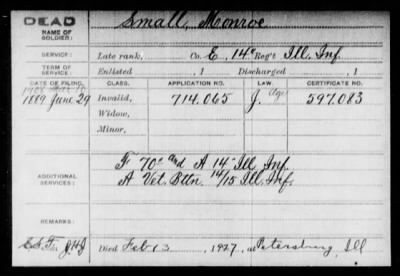 DEAD
NAME OF SOLDIER:
Small, Monroe
SERVICE:
Late rank, Co. E, 14" Reg't Ill. Inf.
TERM OF SERVICE:
Enlisted , 1 Discharged , 1
DATE OF FILING. CLASS. APPLICATION NO. LAW. CERTIFICATE NO.
1908
1889 June 29 Invalid, 714.065 J. Age 597.083
Widow,
Minor,
ADDITIONAL SERVICES:
F 70" and A 14" Ill. Inf.
A Vet. Bttn. 14/15 Ill. Inf.
REMARKS:
Died Feb 13, 1927, at Petersburg, Ill